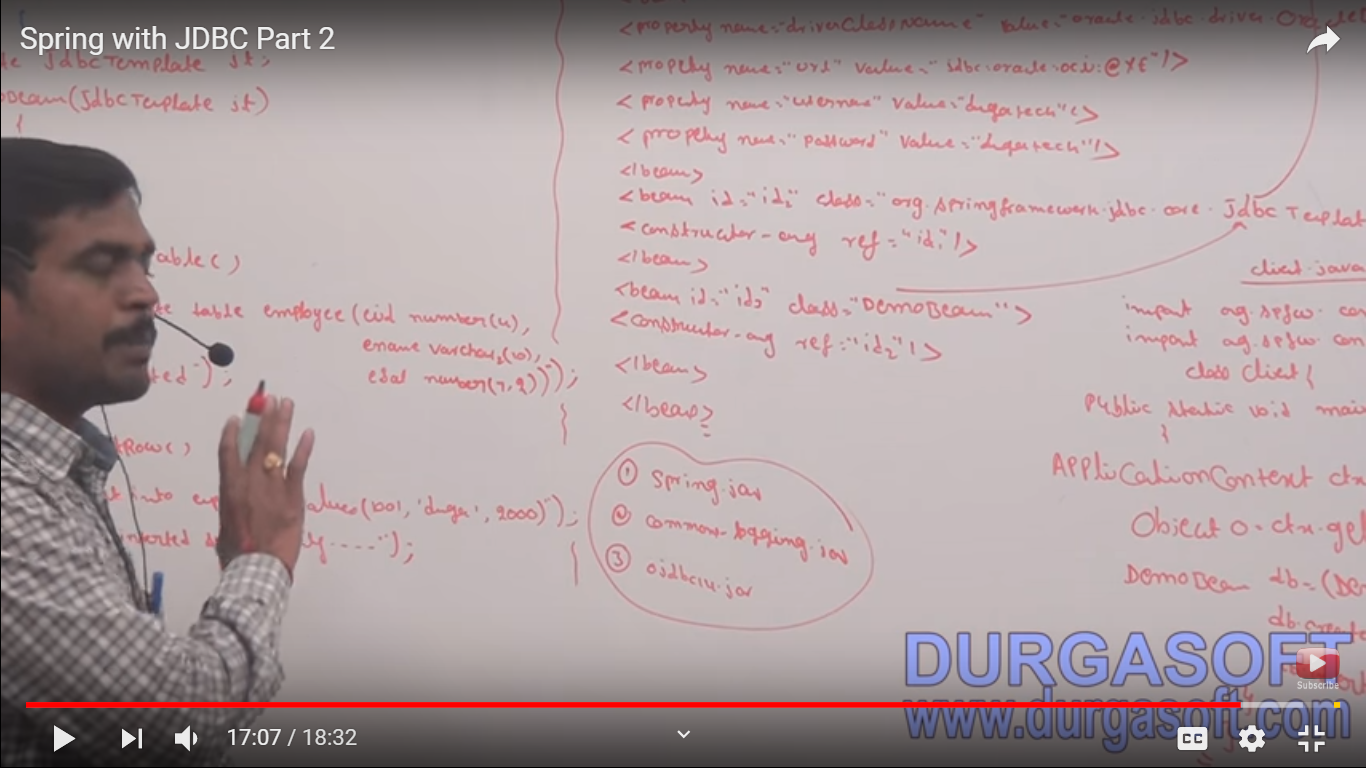 Spring with JDBC Part 2
JdbcTemplate jt;
(JdbcTemplate jt)
{
able()
table employee(eid number(4),
ename varchar2(10),
esal number(7,2))");
ted");
}
Row()
into values(1001,'durga',2000)");
inserted
....");
}
<property name="driverClassName" value="oracle.jdbc.driver.
<property name="url" value="jdbc:oracle:oci:@XE"/>
<property name="username" value="durgatech"/>
<property name="password" value="durgatech"/>
</bean>
<bean id="id2" class="org.springframework.jdbc.core.JdbcTemplat
<constructor-arg ref="id1"/>
</bean>
<bean id="id3" class="DemoBean">
<constructor-arg ref="id2"/>
</bean>
</beans>
① Spring.jar
② common-logging.jar
③ ojdbc14.jar
client.java
import org.spfw.con
import org.spfw.con
class Client{
public static void mai
{
ApplicationContext ctx
Object o=ctx.get
DemoBean db=(De
db.create
DURGASOFT
www.durgasoft.com
Subscribe
17:07 / 18:32
CC